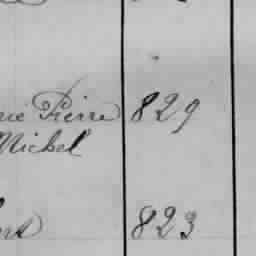 Pierre 829
Michel
823